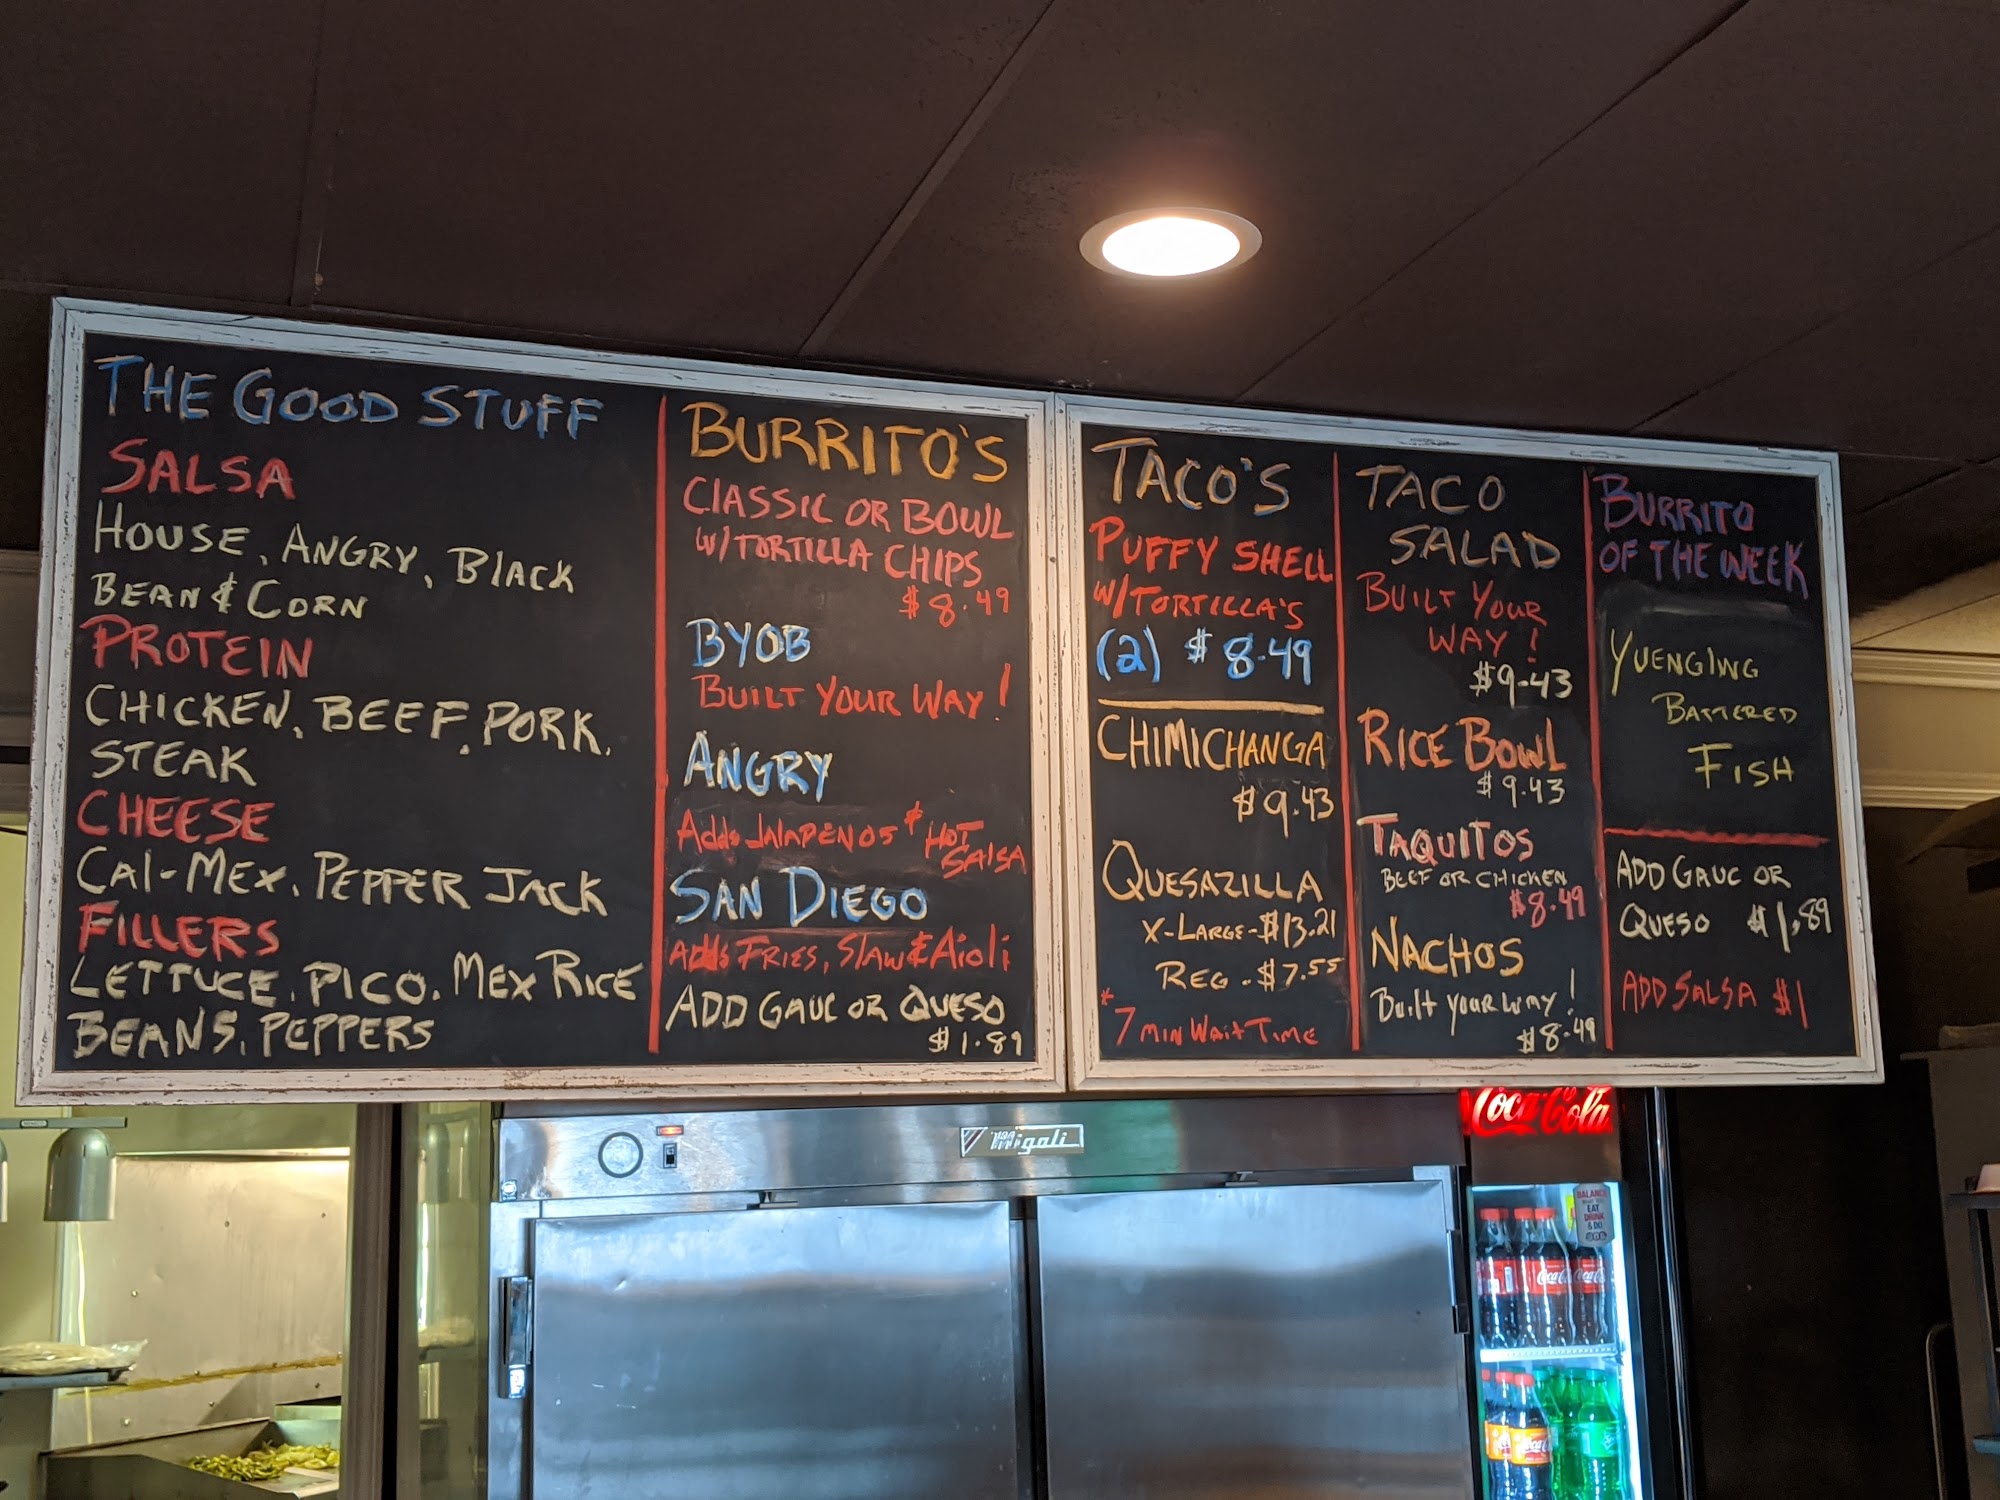 THE GOOD STUFF
SALSA
HOUSE, ANGRY, BLACK
BEAN & CORN
PROTEIN
CHICKEN, BEEF, PORK,
STEAK
CHEESE
CAL-MEX, PEPPER JACK
FILLERS
LETTUCE, PICO, MEX RICE
BEANS, PEPPERS
BURRITO'S
CLASSIC OR BOWL
W/TORTILLA CHIPS
$8.49
BYOB
BUILT YOUR WAY!
ANGRY
Adds JALAPENOS & HOT
SALSA
SAN DIEGO
Adds FRIES, Slaw & Aioli
ADD GAUC OR QUESO
$1.89
TACO'S
PUFFY SHELL
W/TORTILLA'S
(2) $8.49
CHIMICHANGA
$9.43
QUESAZILLA
X-LARGE-$13.21
REG.-$7.55
*7 MIN Wait TIME
TACO
SALAD
BUILT YOUR
WAY!
$9.43
RICE BOWL
$9.43
TAQUITOS
BEEF OR CHICKEN
$8.49
NACHOS
Built your way!
$8.49
BURRITO
OF THE WEEK
YUENGLING
BATTERED
FISH
ADD GAUC OR
QUESO $1.89
ADD SALSA $1
migali
Coca-Cola
BALANCE
WHAT YOU
EAT
DRINK
& DO